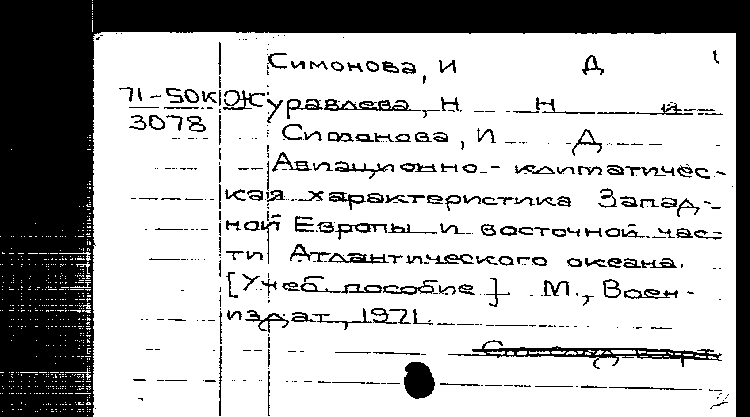 Симонова, И Д
71-50к Журавлева, Н Н и
3078 Симонова, И Д
Авиационно-климатичес-
кая характеристика Запад-
ной Европы и восточной час-
ти Атлантического океана.
[Учеб. пособие] М., Воен-
издат, 1971.